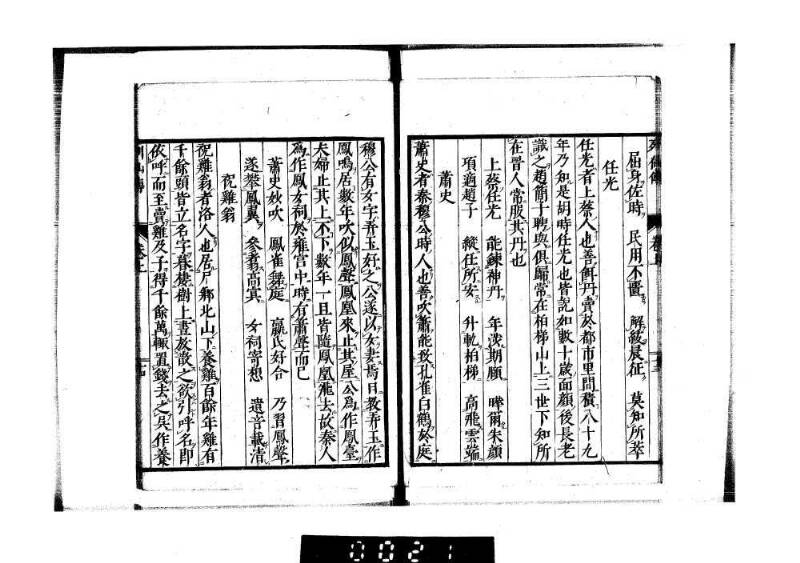 列仙傳
屈身佐時　民用不匱　解紱晨征　莫知所萃
任光
任光者上蔡人也善餌丹賣於都市里間積八十九
年乃知是胡時任光也皆說如數十歲面顏後長老
識之趙簡子聘與俱歸常在柏梯山上三世不知所
在晉人常服其丹也
上蔡任光　能鍊神丹　年涉期頤　曄爾朱顏
項適趙子　縱任所安　升軌柏梯　高飛雲端
蕭史
蕭史者秦穆公時人也善吹簫能致孔雀白鶴於庭
穆公有女字弄玉好之公遂以女妻焉日教弄玉作
鳳鳴居數年吹似鳳聲鳳凰來止其屋公為作鳳臺
夫婦止其上不下數年一旦皆隨鳳凰飛去故秦人
為作鳳女祠於雍宮中時有簫聲而已
蕭史妙吹　鳳雀舞庭　嬴氏好合　乃習鳳聲
遂攀鳳翼　參翥高冥　女祠寄想　遺音載清
祝雞翁
祝雞翁者洛人也居尸鄉北山下養雞百餘年雞有
千餘頭皆立名字暮棲樹上晝放散之欲引呼名即
依呼而至賣雞及子得千餘萬輒置錢去之吳作養
0021